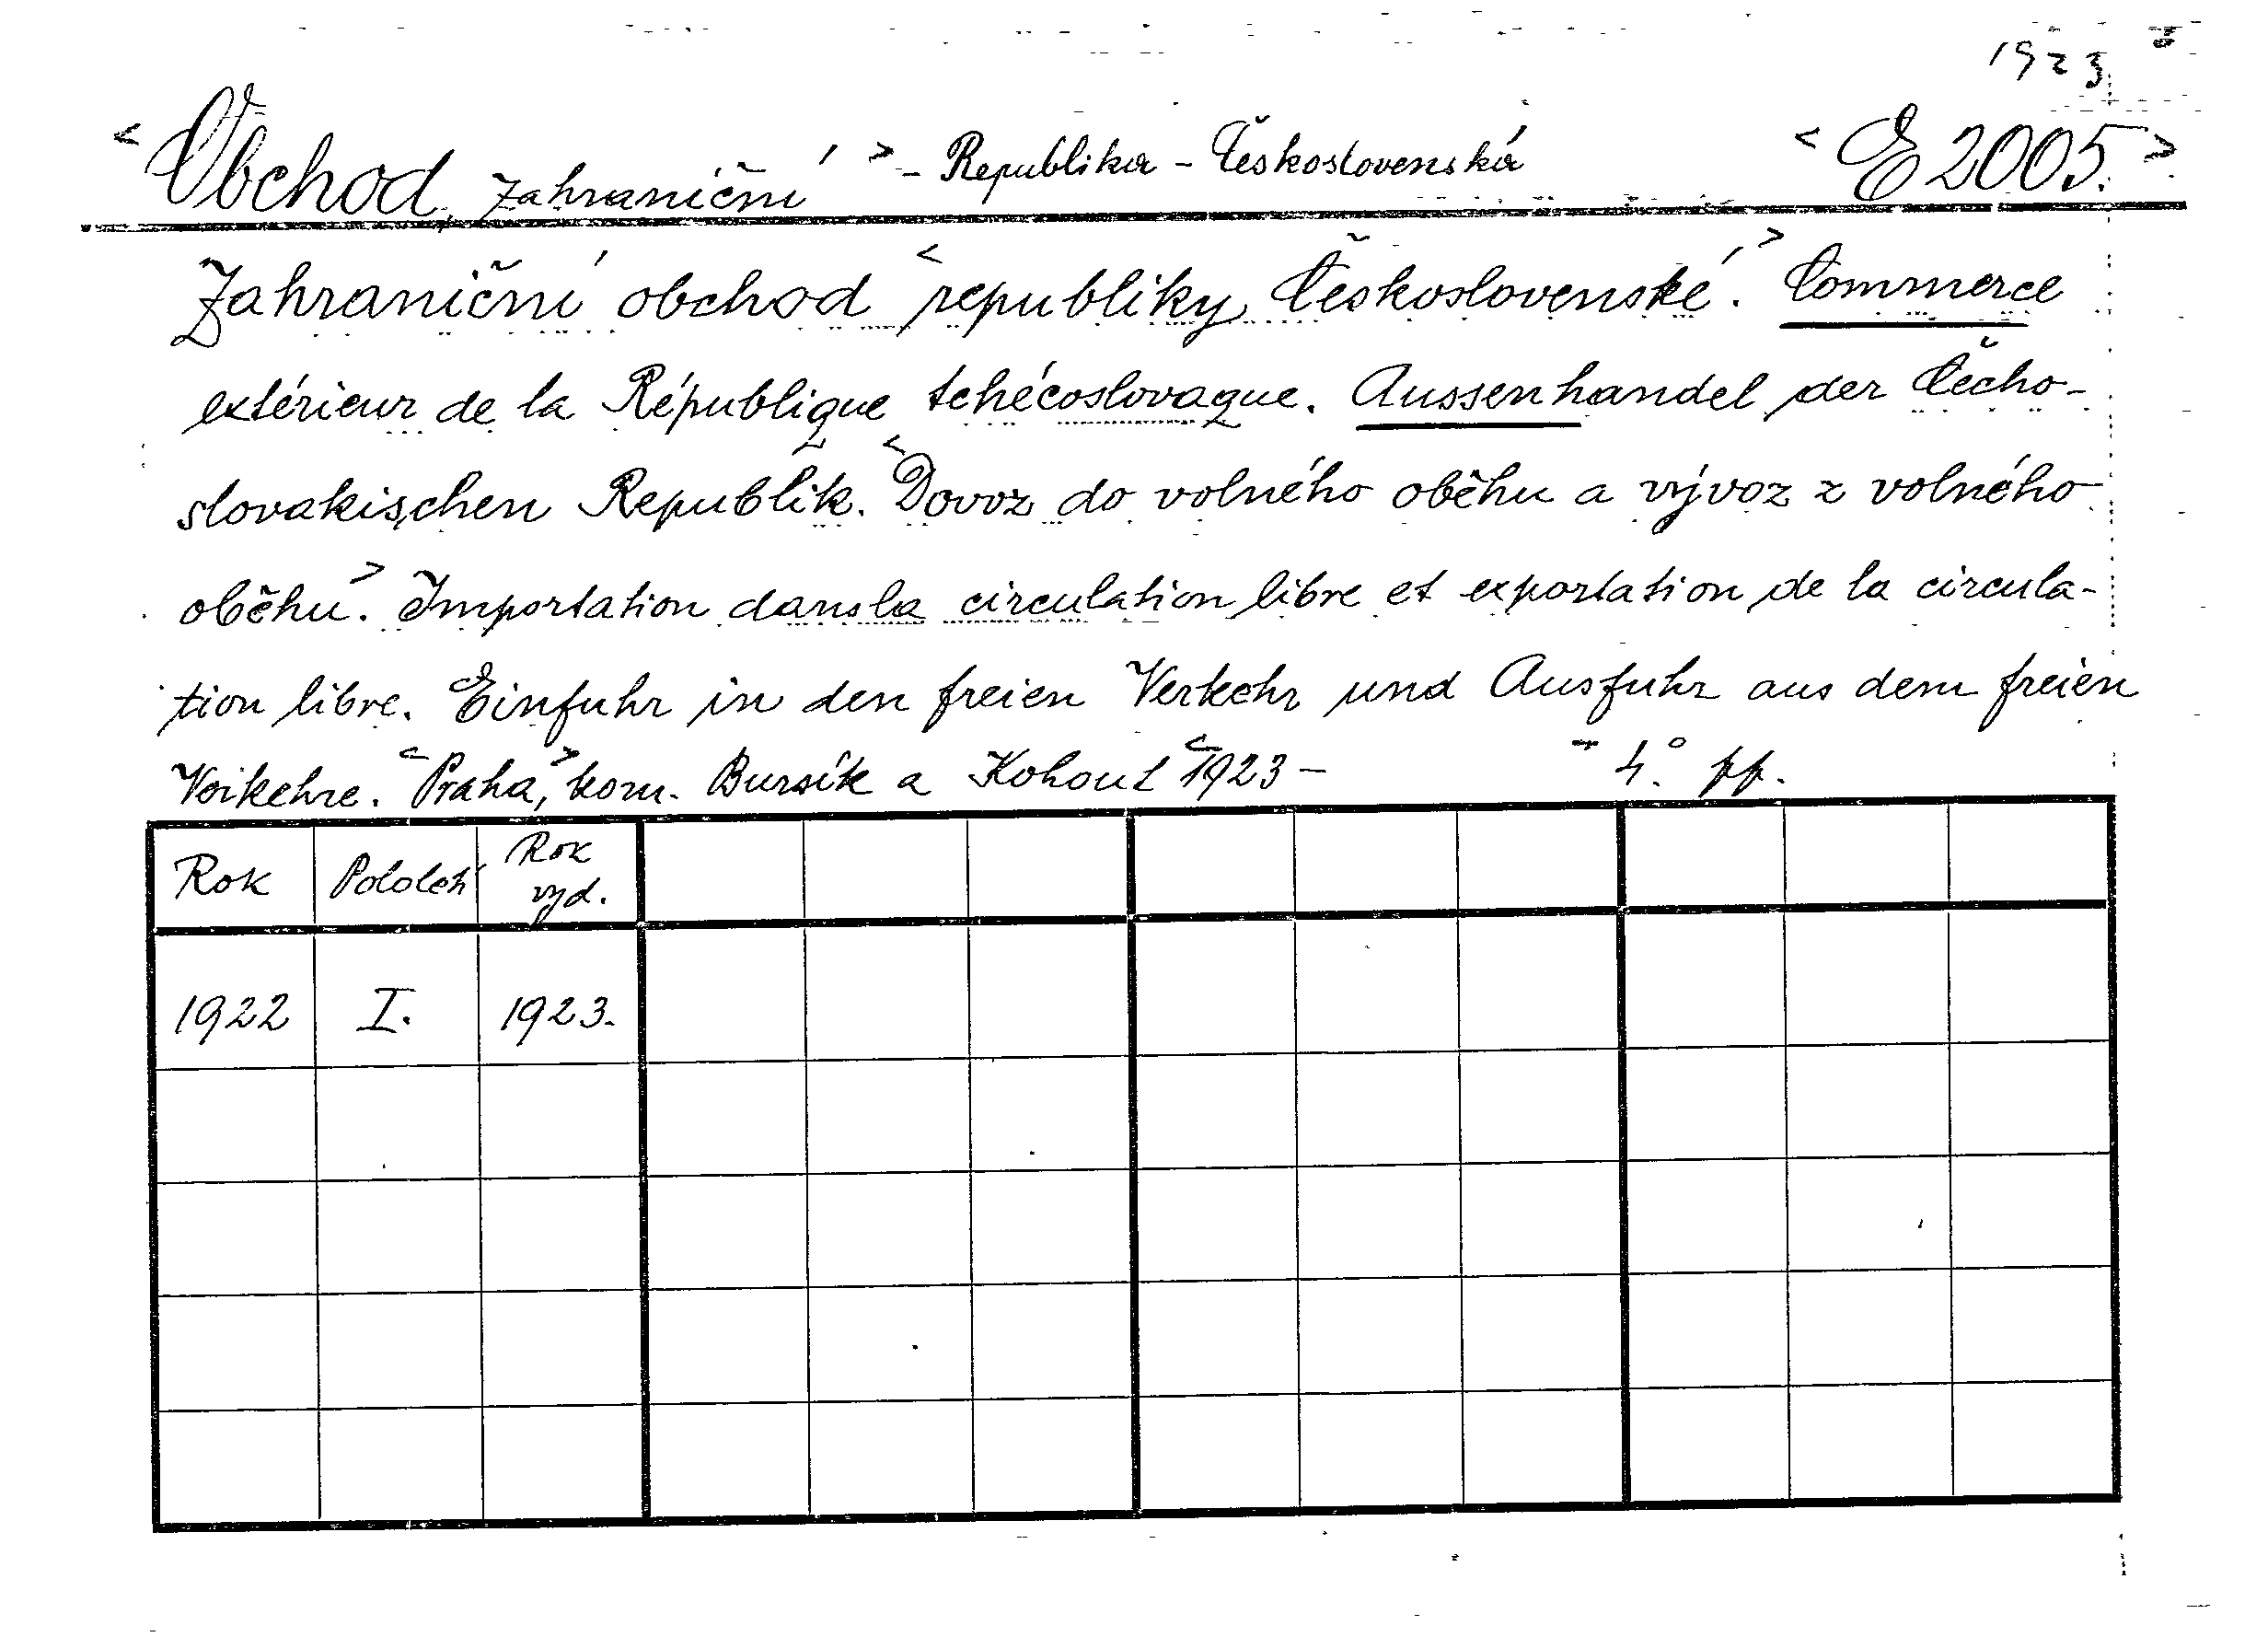 1923
<Obchod, zahraniční> - Republika - Československá <E 2005.>
Zahraniční obchod <republiky Československé.> Commerce
extérieur de la République tchécoslovaque. Aussenhandel der Čecho-
slovakischen Republik. <Dovoz do volného oběhu a vývoz z volného
oběhu.> Importation dans la circulation libre et exportation de la circula-
tion libre. Einfuhr in den freien Verkehr und Ausfuhr aus dem freien
Verkehre. <Praha,> kom. Bursík a Kohout <1923 - - 4°. pp.
Rok Pololetí Rok vyd.
1922 I. 1923.